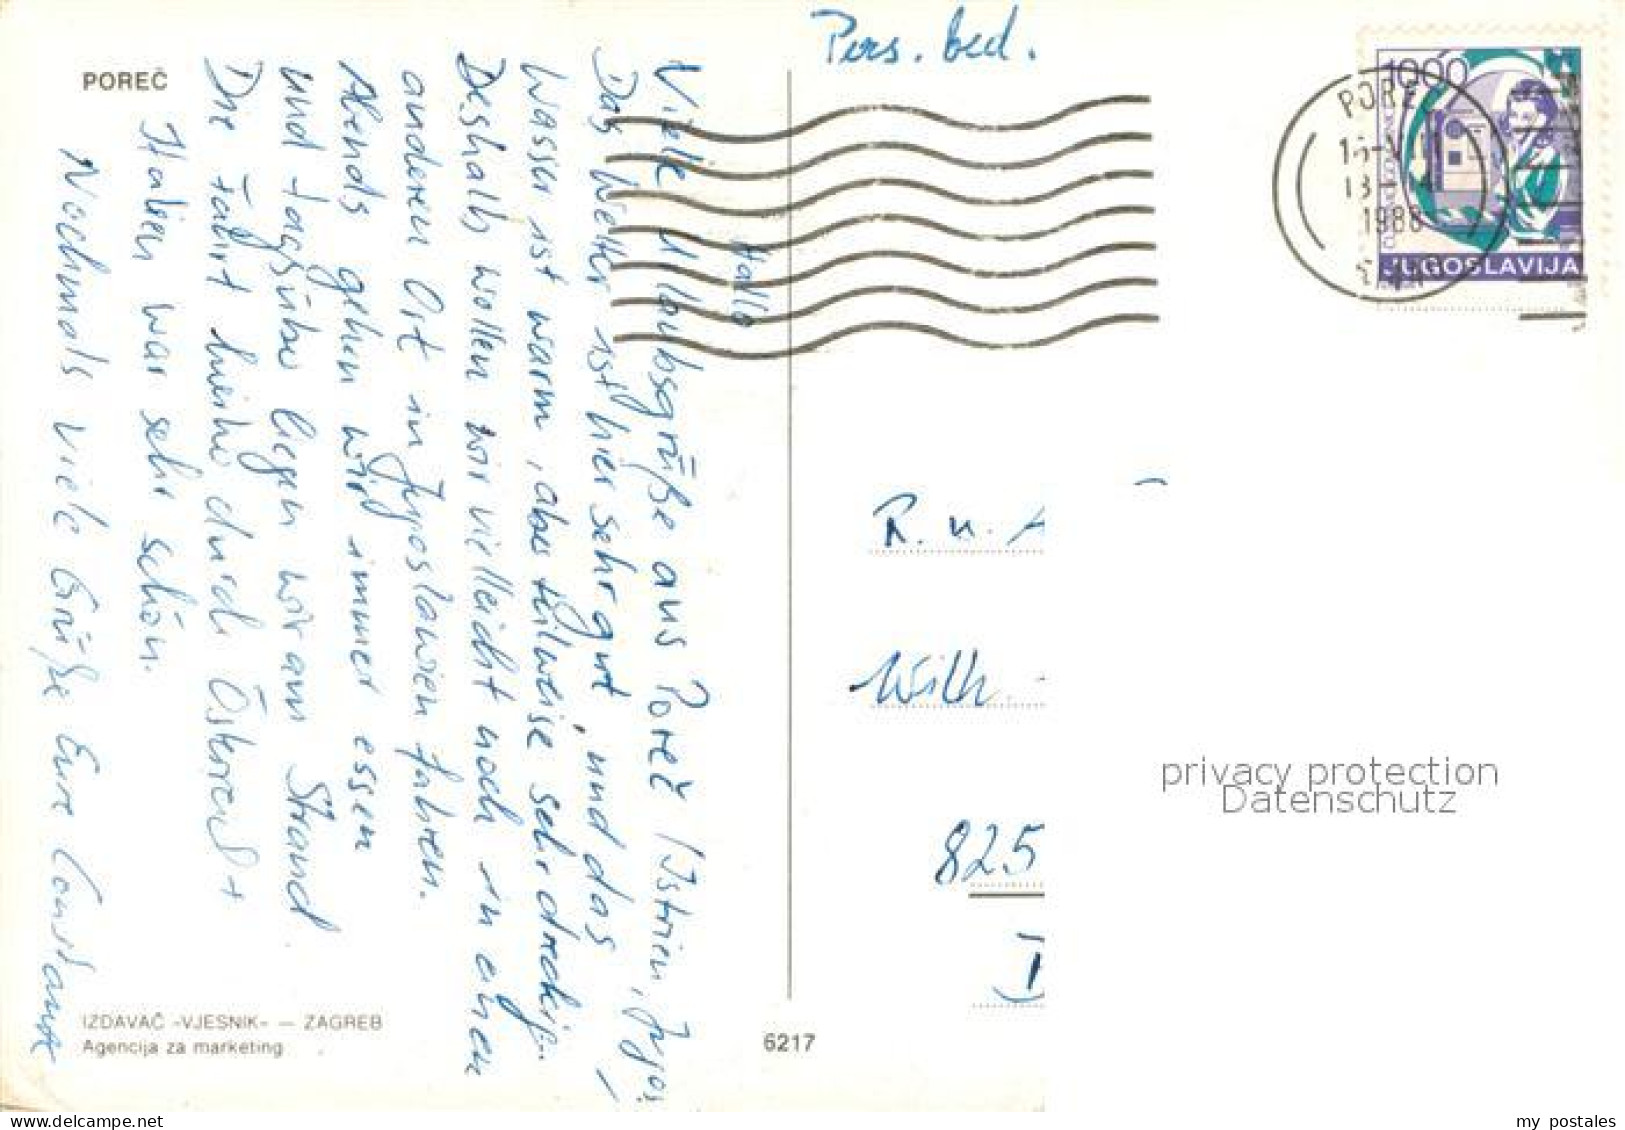 POREČ
Hallo
Viele Urlaubsgrüße aus Poreč (Istrien, Jugos.)
Das Wetter ist hier sehr gut, und das
Wasser ist warm, aber teilweise sehr dreckig.
Deshalb wollen wir vielleicht noch in einen
anderen Ort in Jugoslawien fahren.
Abends gehen wir immer essen
und tagsüber liegen wir am Strand.
Die Fahrt hierher durch Österreich +
Italien war sehr schön.
Nochmals viele Grüße Eure Constanze
IZDAVAČ «VJESNIK» — ZAGREB
Agencija za marketing
6217
Pers. bed.
1000
JUGOSLAVIJA
PORE
1988
R. u. A
Wilh.
825
privacy protection
Datenschutz
delcampe.net
my postales